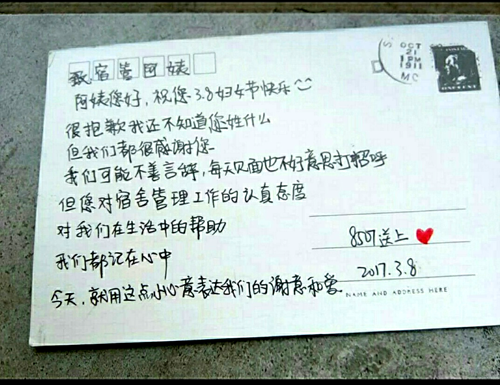 致宿管阿姨
阿姨您好,祝您3.8妇女节快乐
很抱歉我还不知道您姓什么
但我们都很感谢您
我们可能不善言辞,每天见面也不好意思打招呼
但您对宿舍管理工作的认真态度
对我们在生活中的帮助
我们都记在心中
今天,就用这点小心意表达我们的谢意和爱
8507送上
2017.3.8
NAME AND ADDRESS HERE
OCT
21
1PM
1911
MC